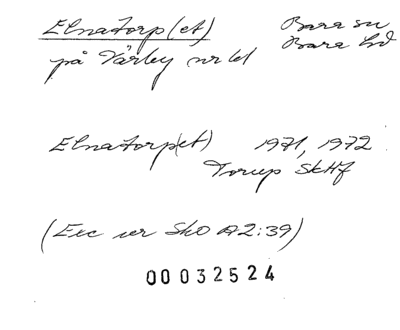 Elnatorp(et) Bara sn
Bara hd
på Värby nr 61
Elnatorp(et) 1971, 1972
Torup SkHf
(Exc ur SkO A2:39)
00032524